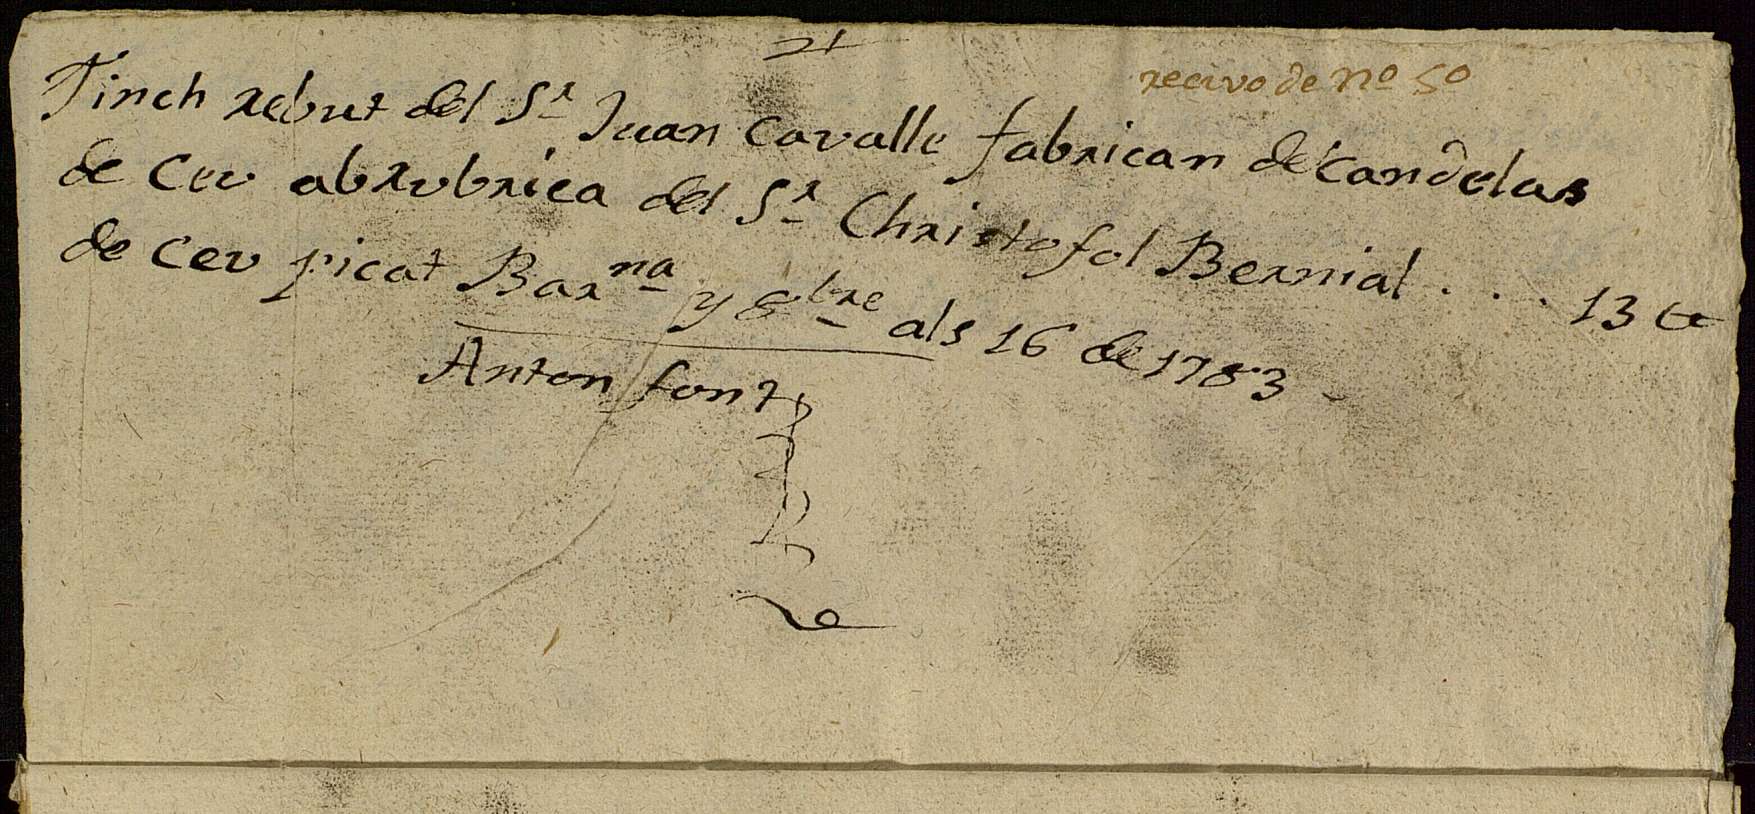 21
recivo de nº 50
Tinch rebut del Sr Juan Cavalle fabrican de Candelas
de Ceu abrubrica del Sr Christofol Bernial . . . 13 ₶
de Ceu picat Barna y 8bre als 16 de 1783
Anton font